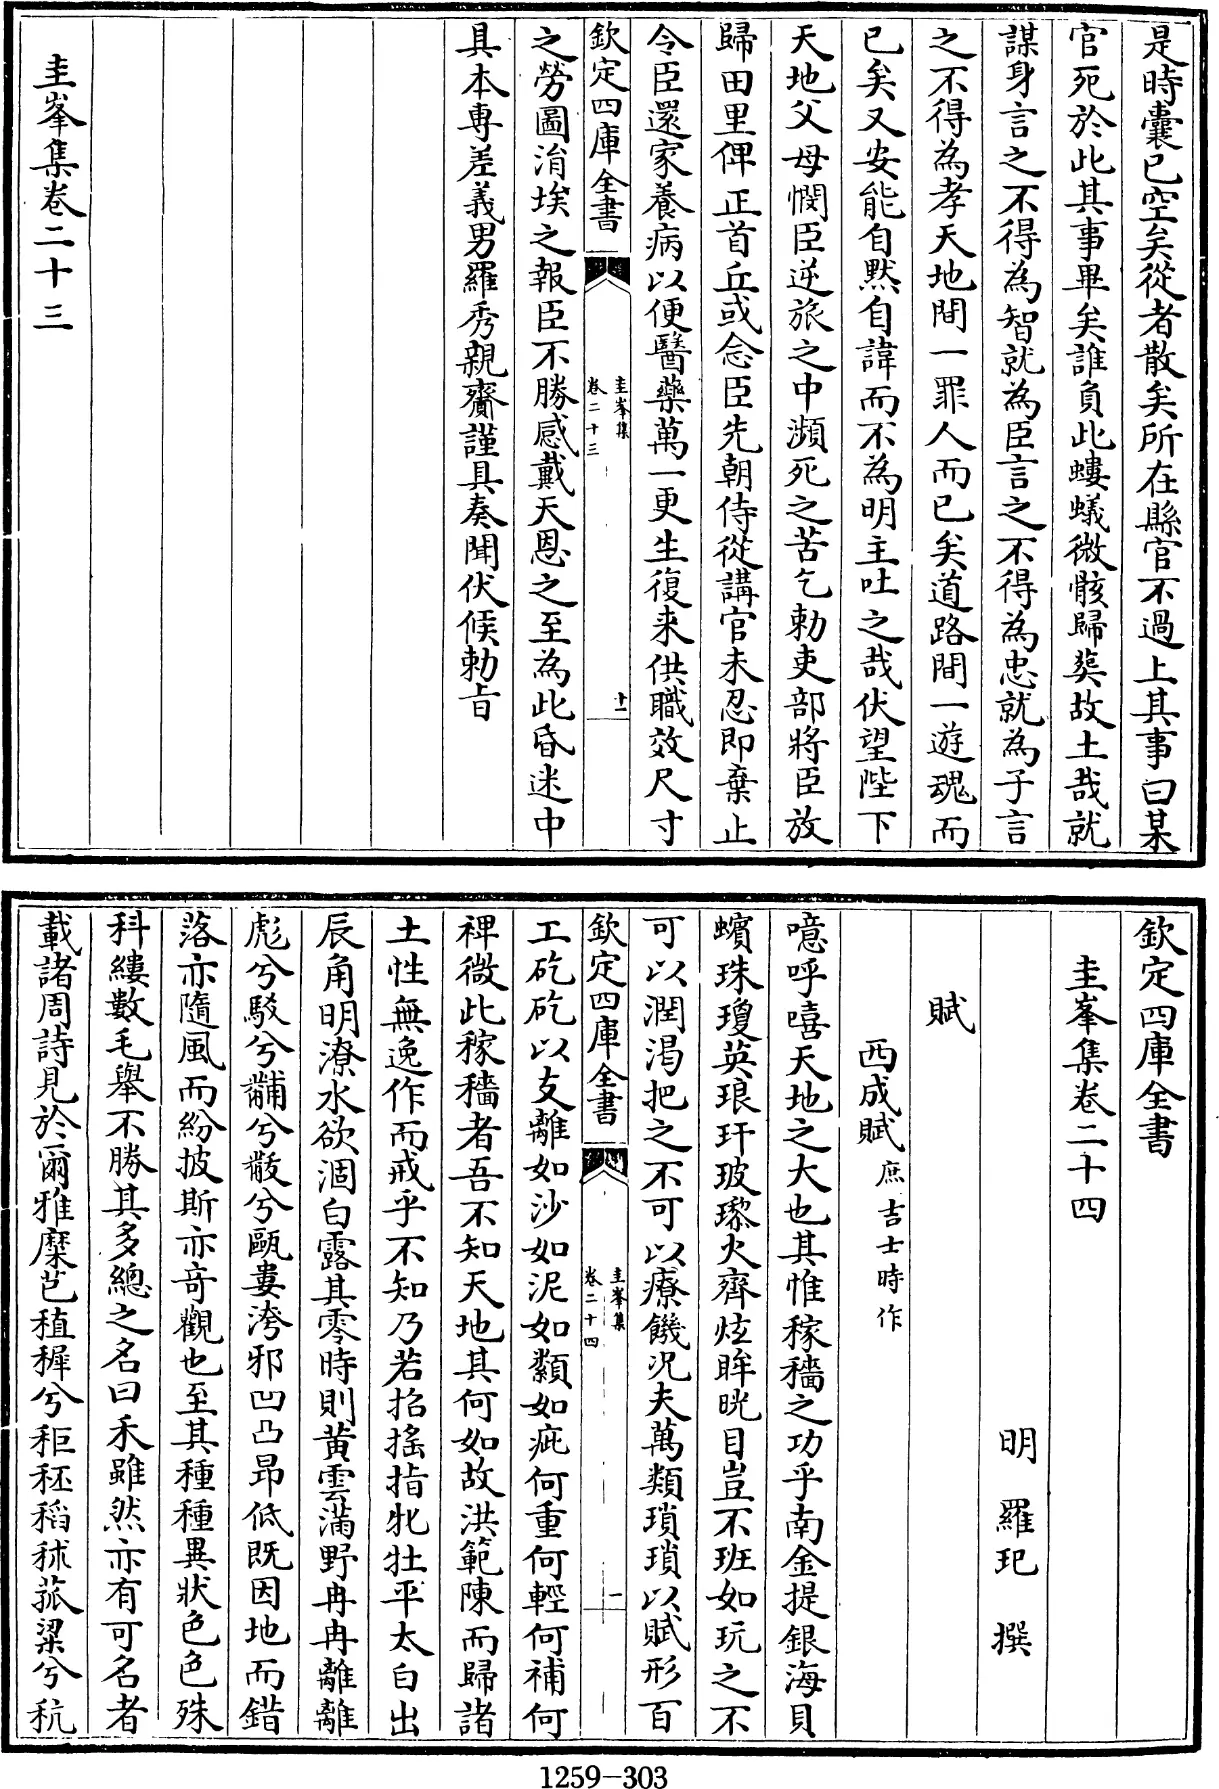 是時囊已空矣從者散矣所在縣官不過上其事曰某
官死於此其事畢矣誰負此螻蟻微骸歸葬故土哉就
謀身言之不得為智就為臣言之不得為忠就為子言
之不得為孝天地間一罪人而已矣道路間一遊魂而
已矣又安能自默自諱而不為明主吐之哉伏望陛下
天地父母憫臣逆旅之中瀕死之苦乞勅吏部將臣放
歸田里俾正首丘或念臣先朝侍從講官未忍即棄止
令臣還家養病以便醫藥萬一更生復来供職效尺寸
欽定四庫全書
圭峯集
卷二十三
十一
之勞圖涓埃之報臣不勝感戴天恩之至為此昏迷中
具本專差義男羅秀親賫謹具奏聞伏候勅旨
圭峯集卷二十三
欽定四庫全書
圭峯集卷二十四
明 羅玘 撰
賦
西成賦 庶吉士時作
噫呼嘻天地之大也其惟稼穡之功乎南金提銀海貝
蠙珠瓊英琅玕玻瓈火齊炫眸晄目豈不班如玩之不
可以潤渴把之不可以療饑况夫萬類瑣瑣以賦形百
欽定四庫全書
圭峯集
卷二十四
一
工矻矻以支離如沙如泥如纇如疵何重何輕何補何
裨微此稼穡者吾不知天地其何如故洪範陳而歸諸
土性無逸作而戒乎不知乃若招搖指牝牡平太白出
辰角明潦水欲涸白露其零時則黄雲滿野冉冉離離
彪兮駁兮黼兮黻兮甌婁洿邪凹凸昂低既因地而錯
落亦隨風而紛披斯亦竒觀也至其種種異狀色色殊
科縷數毛舉不勝其多總之名曰禾雖然亦有可名者
載諸周詩見於爾雅穈芑稙穉兮秬秠稻秫菰粱兮秔
1259-303